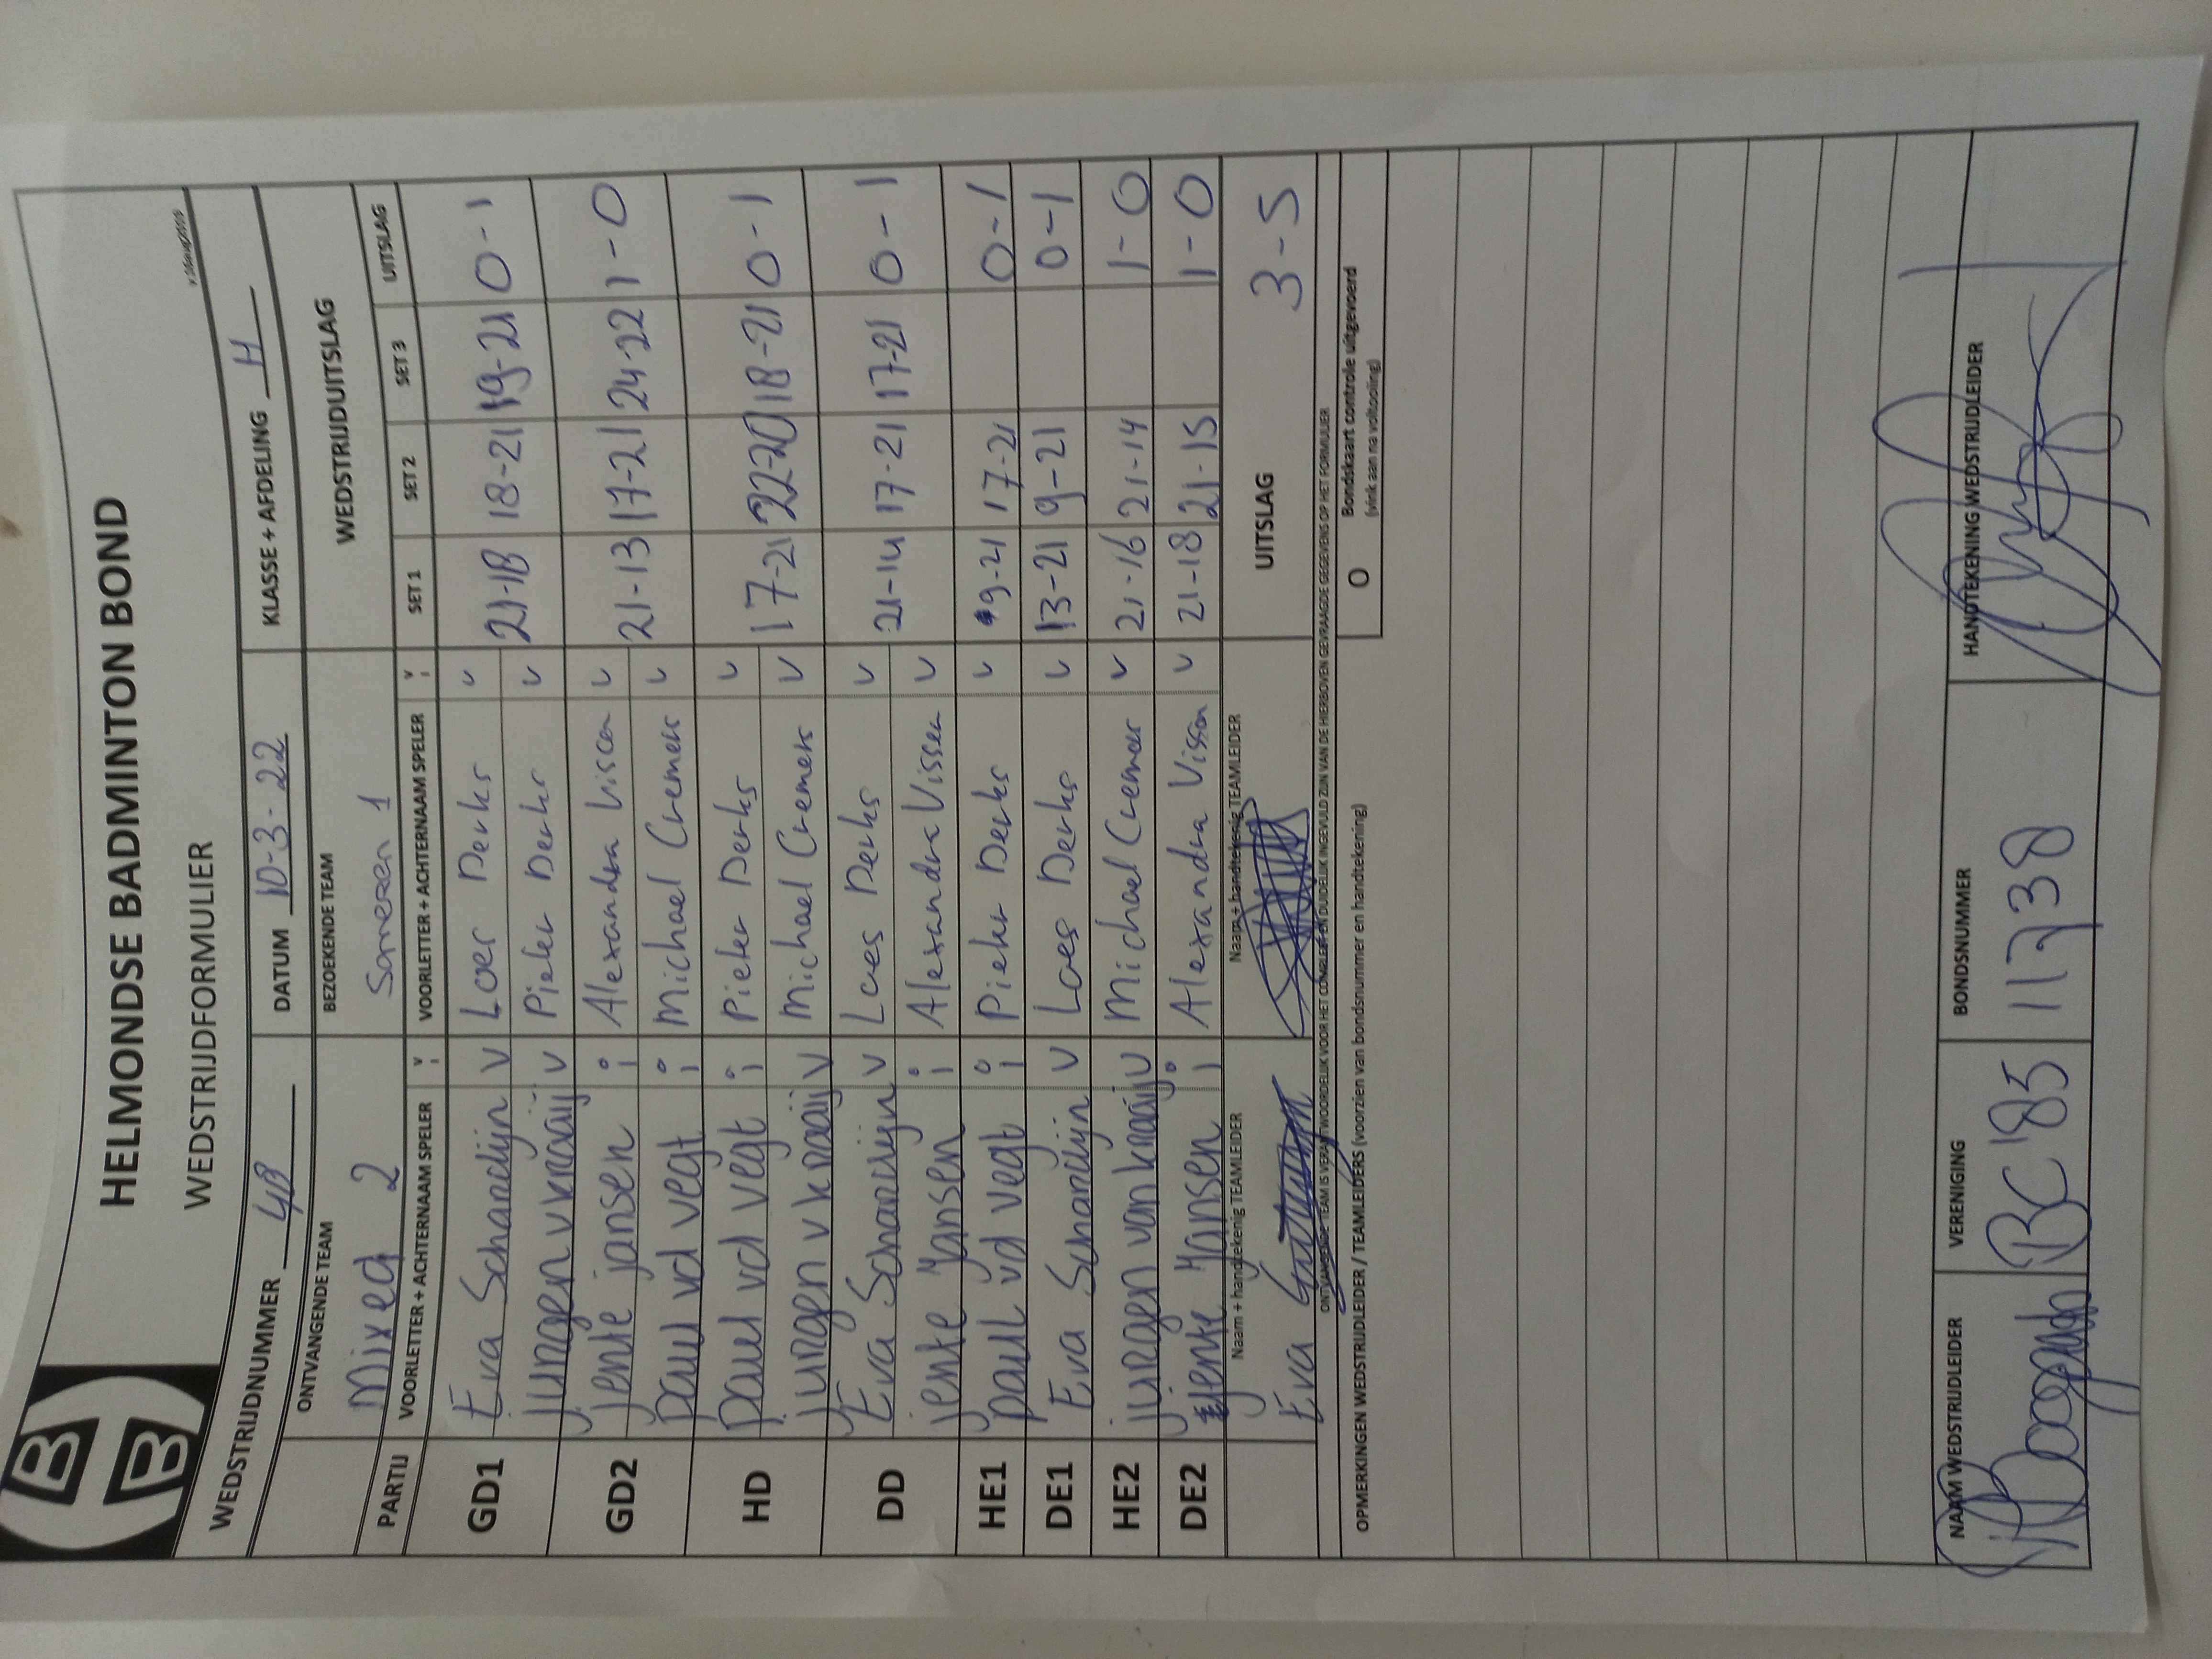 HELMONDSE BADMINTON BOND
WEDSTRIJDFORMULIER
WEDSTRIJDNUMMER 4B DATUM 10-3-22 KLASSE + AFDELING H
ONTVANGENDE TEAM BEZOEKENDE TEAM WEDSTRIJDUITSLAG
Mixed 2 Someren 1
PARTIJ VOORLETTER + ACHTERNAAM SPELER V VOORLETTER + ACHTERNAAM SPELER V SET 1 SET 2 SET 3 UITSLAG
GD1 Eva Schandijn V Loes Derks v 21-18 18-21 19-21 0-1
jurgen v kraaij V Pieter Derks v
GD2 jente jansen i Alexandra Vissen v 21-13 17-21 24-22 1-0
paul vd vegt i Michael Cremers v
HD paul vd vegt i Pieter Derks v 17-21 22-20 18-21 0-1
jurgen v kraaij V Michael Cremers V
DD Eva Schandijn V Loes Derks v 21-14 17-21 17-21 0-1
jente Jansen i Alexandra Vissen v
HE1 paul vd vegt i Pieter Derks v 9-21 17-21 0-1
DE1 Eva Schandijn V Loes Derks v 13-21 9-21 0-1
HE2 jurgen van kraaij V Michael Cremers v 21-16 21-14 1-0
DE2 jente Jansen i Alexandra Vissen v 21-18 21-15 1-0
Naam + handtekenig TEAMLEIDER Naam + handtekenig TEAMLEIDER UITSLAG 3-5
Eva
ONTVANGENDE TEAM IS VERANTWOORDELIJK VOOR HET COMPLEET EN DUIDELIJK INGEVULD ZIJN VAN DE HIERBOVEN GEVRAAGDE GEGEVENS OP HET FORMULIER
OPMERKINGEN WEDSTRIJDLEIDER / TEAMLEIDERS (voorzien van bondsnummer en handtekening) O Bondskaart controle uitgevoerd
(vink aan na voltooiing)
NAAM WEDSTRIJDLEIDER VERENIGING BONDSNUMMER HANDTEKENING WEDSTRIJDLEIDER
BC '85 11738